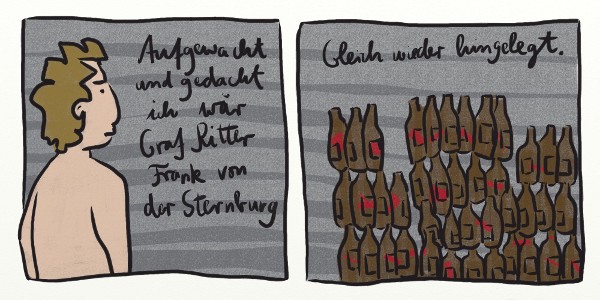 Aufgewacht
und gedacht
ich wär
Graf Ritter
Frank von
der Sternburg
Gleich wieder hingelegt.